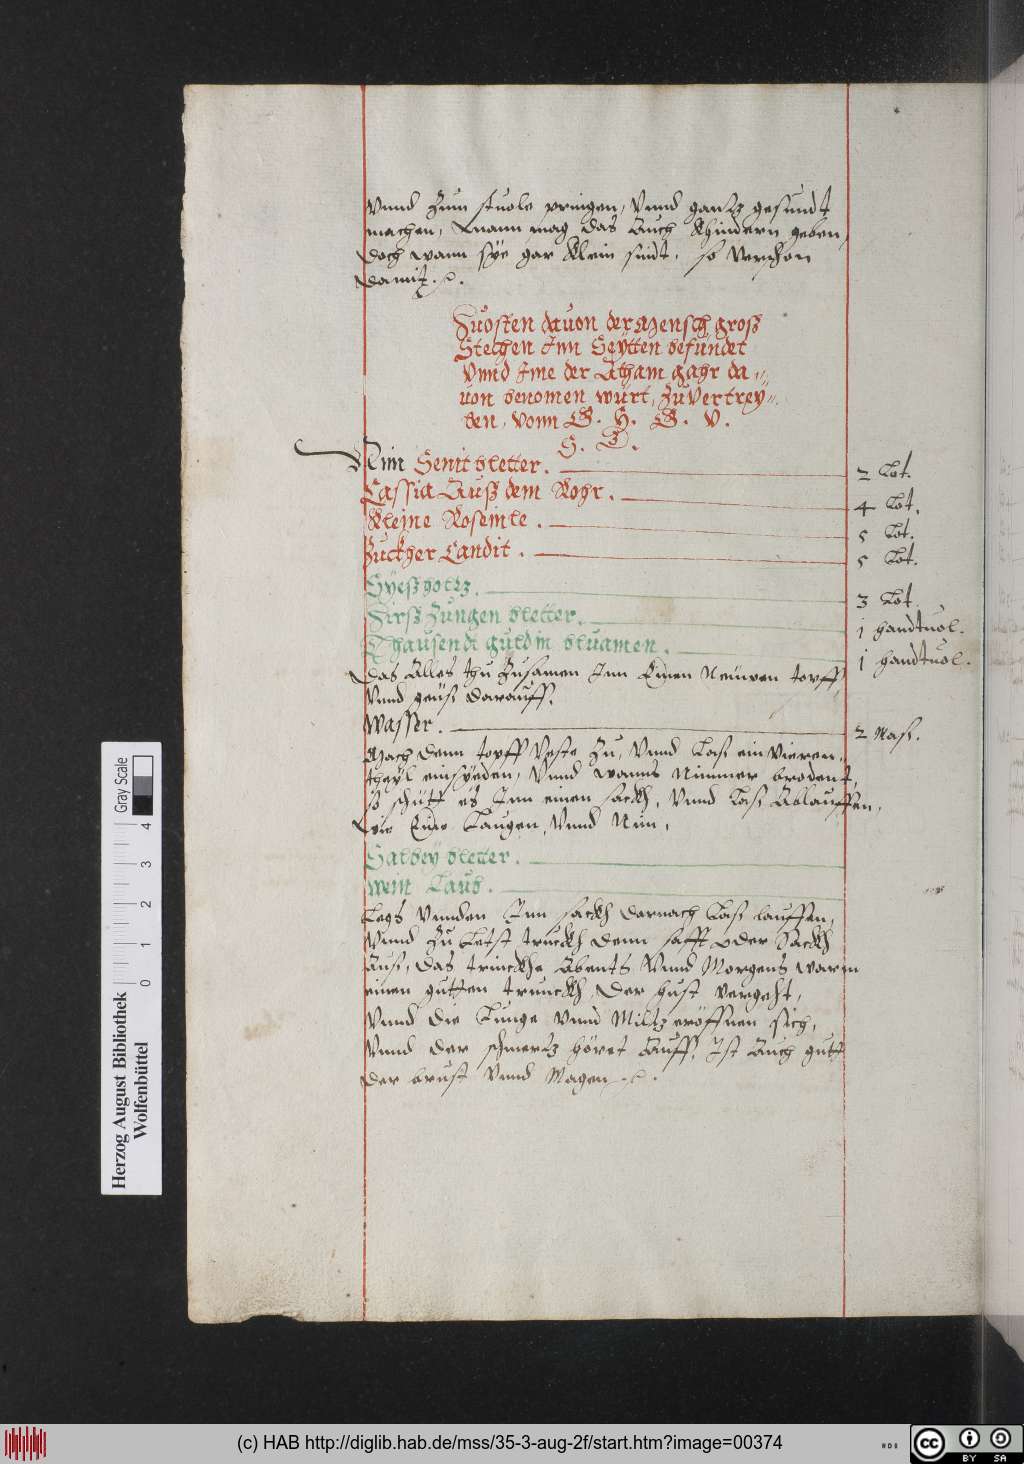 Vnnd Zum stuole pringen, Vnnd gantz gesundt
machen, Mann mag das Auch Khindern geben,
Doch wann sye gar klein sindt, so Verschon
Damit. ⁊c.
Huosten dauon der Mensch gross
Stechen Inn Seytten befündet
Vnnd Ime der Atham gahr da„
uon benomen würt, Zu Vertrey„
ben, vonn G. H. G. V.
S. D.
Nim Senit bletter. 2 Lot.
Cassia Auss dem Rohr. 4 Lot.
Kleine Roseinle. 5 Lot.
Zuckher Candit. 5 Lot.
Syessholtz. 3 Lot.
Hirss Zungen bletter. 1 handtuol.
Thausendt guldin bluamen. 1 handtuol.
Das Alles thu Zusamen Inn Einen Neuwen topff,
Vnnd geuss darauff.
Wasser. 2 Mass.
Mach denn topff Veste Zu, Vnnd Lass ein vieren„
theyl einsyeden, Vnnd wanns Nimmer brodent,
so schütt es Inn einen sackh, Vnnd Lass Ablauffen,
Wie Eine Laugen, Vnnd Nim,
Salbey bletter.
Wein Laub.
Legs Vnnden Inn sackh darnach Lass lauffen,
Vnnd Zu Letst truckh denn safft oder Sackh
Auss, das trinckhe Abents Vnnd Morgens warm
einen gutten trunckh, Der hust vergeht,
Vnnd die Lunge Vnnd Miltz eröffnen sich,
Vnnd der schmertz höret Auff, Ist Auch gutt
der brust Vnnd Magen ⁊c.
Herzog August Bibliothek
Wolfenbüttel
0 1 2 3 4
Gray Scale
(c) HAB http://diglib.hab.de/mss/35-3-aug-2f/start.htm?image=00374
cc BY SA